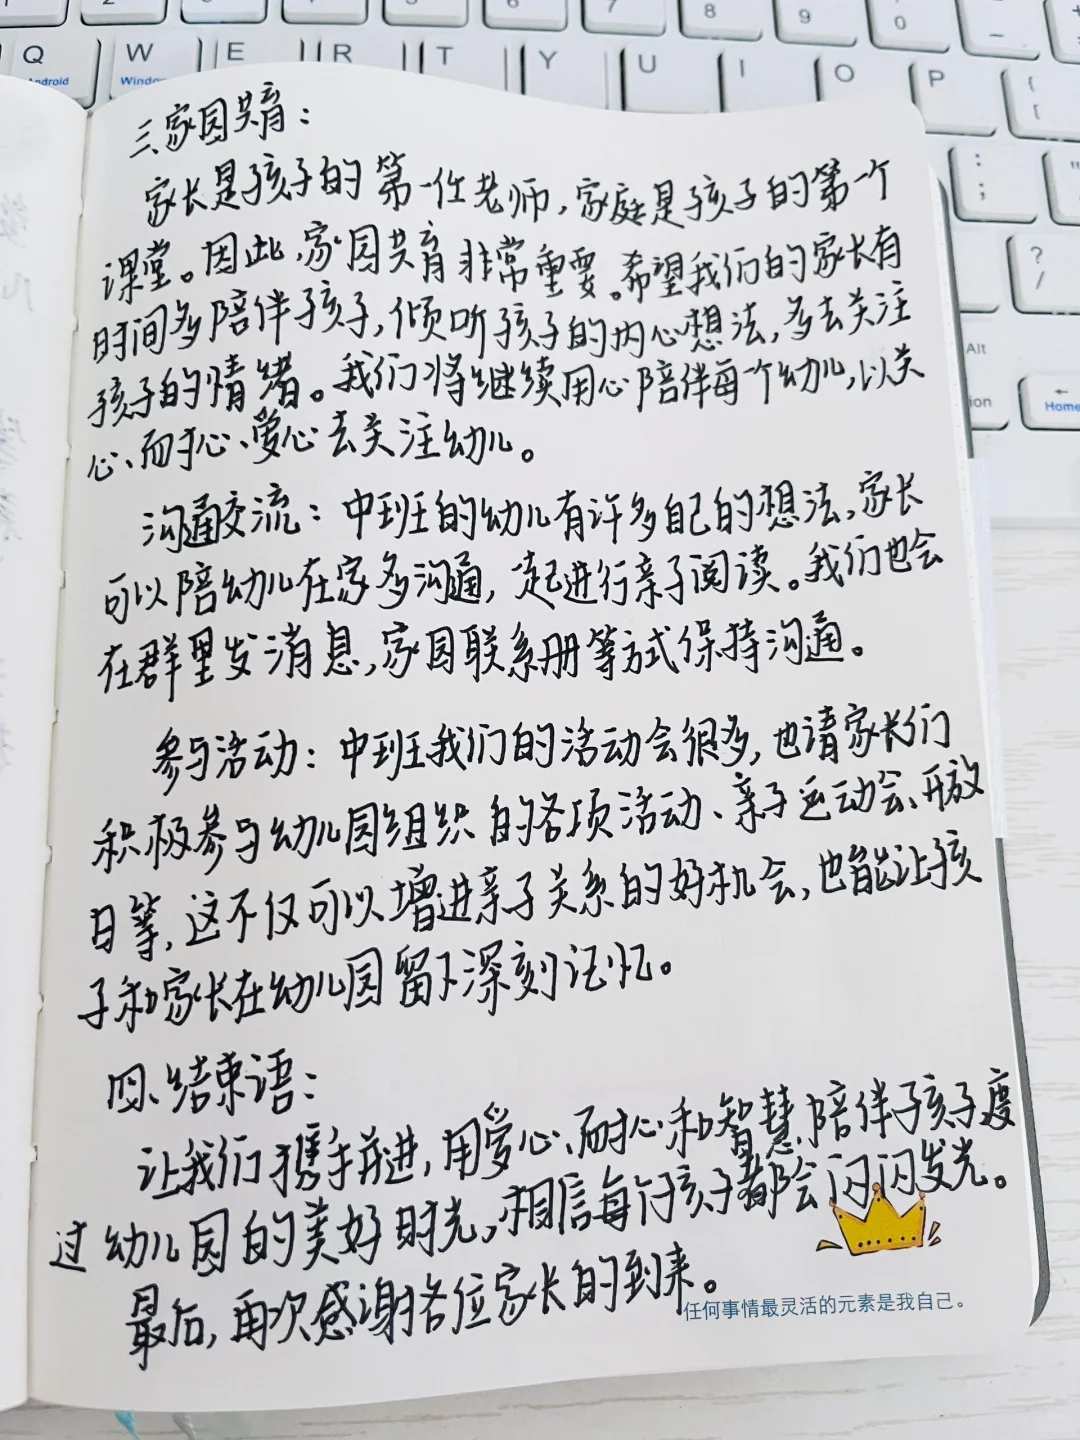 Q W E R T Y U I O P
Android Windows
5 6 7 8 9 0
三、家园共育：
家长是孩子的第一任老师，家庭是孩子的第一个
课堂。因此，家园共育非常重要。希望我们的家长有
时间多陪伴孩子，倾听孩子的内心想法，多去关注
孩子的情绪。我们将继续用心陪伴每个幼儿，以关
心、耐心、爱心去关注幼儿。
沟通交流：中班的幼儿有许多自己的想法，家长
可以陪幼儿在家多沟通，一起进行亲子阅读。我们也会
在群里发消息，家园联系册等方式保持沟通。
参与活动：中班我们的活动会很多，也请家长们
积极参与幼儿园组织的各项活动、亲子运动会、开放
日等，这不仅可以增进亲子关系的好机会，也能让孩
子和家长在幼儿园留下深刻记忆。
四、结束语：
让我们携手并进，用爱心、耐心和智慧，陪伴孩子度
过幼儿园的美好时光，相信每个孩子都会闪闪发光。
最后，再次感谢各位家长的到来。
任何事情最灵活的元素是我自己。
Alt
Home